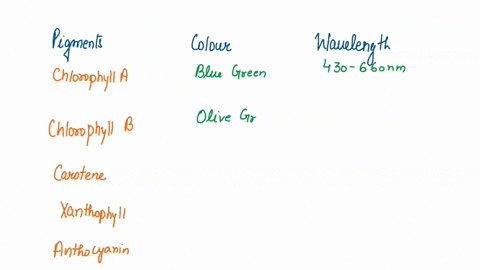 Pigments Colour Wavelength
Chlorophyll A Blue Green 430-660nm
Chlorophyll B Olive Gr
Carotene
Xanthophyll
Anthocyanin